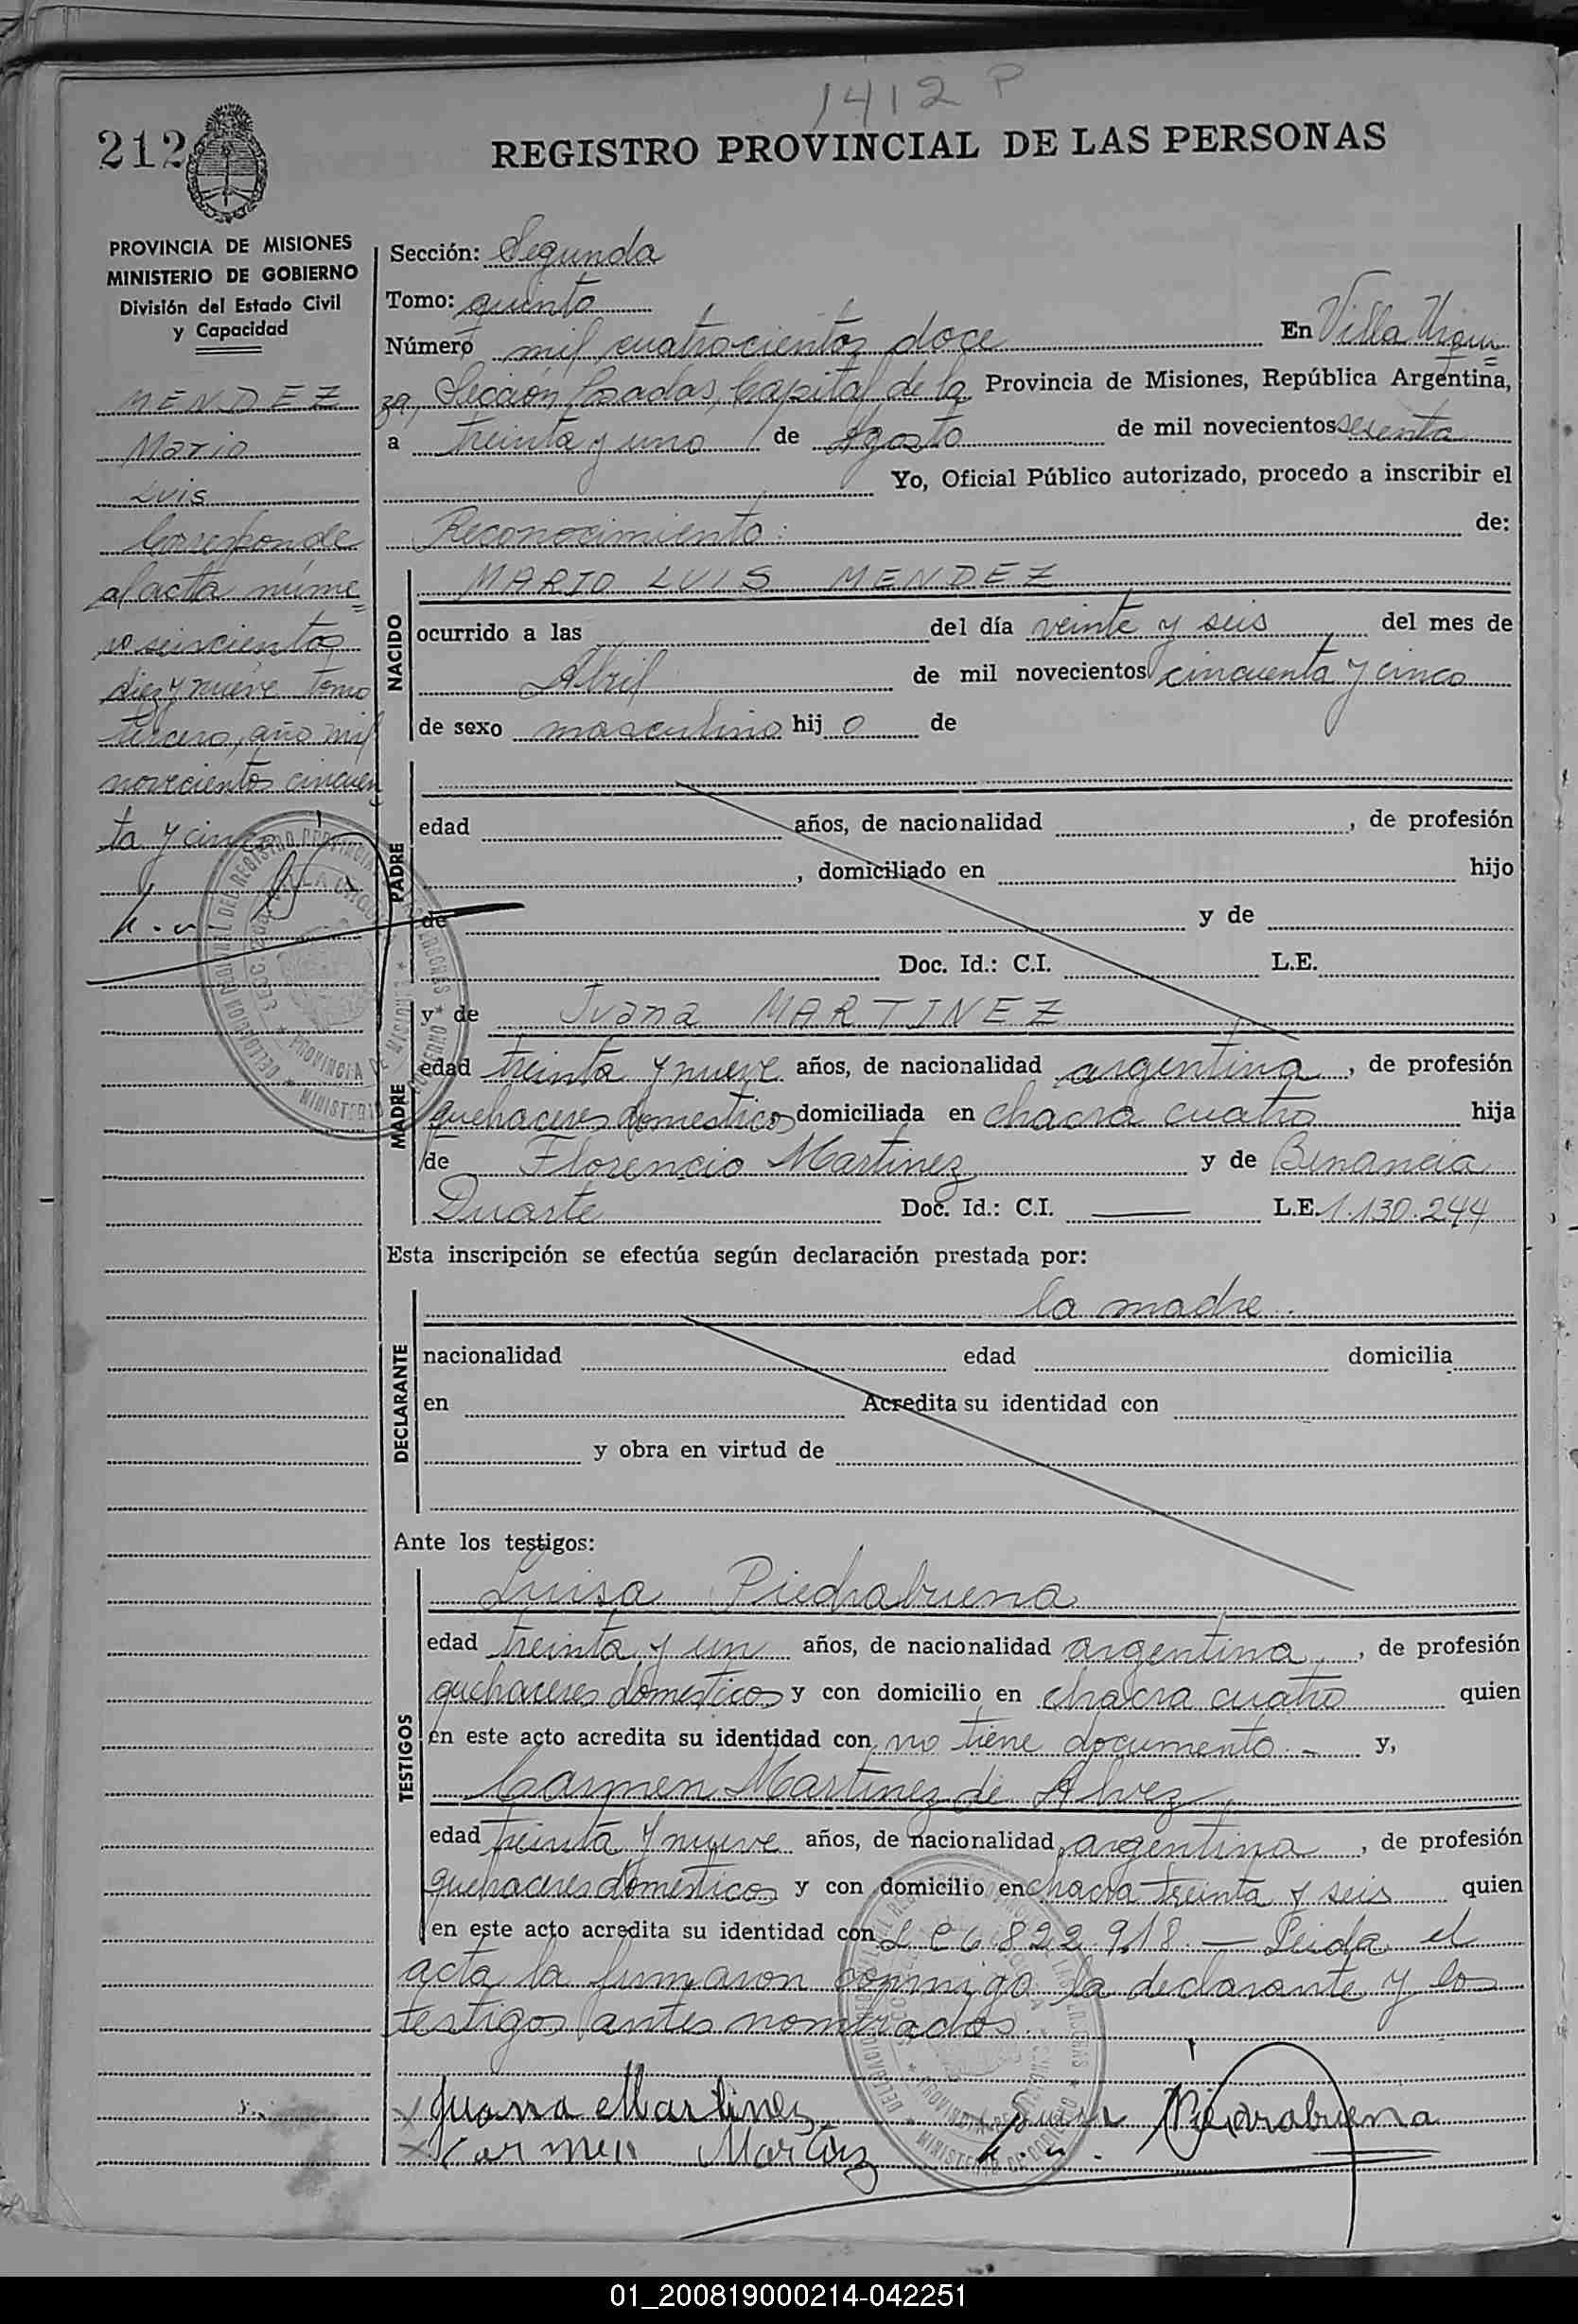 1412 P
212
REGISTRO PROVINCIAL DE LAS PERSONAS
PROVINCIA DE MISIONES
MINISTERIO DE GOBIERNO
División del Estado Civil
y Capacidad
MENDEZ
Mario
Luis
Corresponde
al acta núme=
ro seiscientos
diez y nueve Tomo
tercero, año mil
novecientos cincuen
ta y cinco
Sección: Segunda
Tomo: quinto
Número mil cuatrocientos doce En Villa Urqui=
za, Sección Posadas, Capital de la Provincia de Misiones, República Argentina,
a treinta y uno de Agosto de mil novecientos sesenta
Yo, Oficial Público autorizado, procedo a inscribir el
Reconocimiento: de:
NACIDO
MARIO LUIS MENDEZ
ocurrido a las del día veinte y seis del mes de
Abril de mil novecientos cincuenta y cinco
de sexo masculino hij o de
PADRE
edad años, de nacionalidad , de profesión
, domiciliado en hijo
de y de
Doc. Id.: C.I. L.E.
MADRE
y de Juana MARTINEZ
edad treinta y nueve años, de nacionalidad argentina , de profesión
quehaceres domesticos domiciliada en chacra cuatro hija
de Florencio Martinez y de Benancia
Duarte Doc. Id.: C.I. — L.E. 1.130.244
Esta inscripción se efectúa según declaración prestada por:
DECLARANTE
la madre.
nacionalidad edad domicilia
en Acredita su identidad con
y obra en virtud de
Ante los testigos:
TESTIGOS
Luisa Piedrabuena
edad treinta y un años, de nacionalidad argentina, , de profesión
quehaceres domesticos y con domicilio en chacra cuatro quien
en este acto acredita su identidad con no tiene documento.- y,
Carmen Martinez de Alvez
edad treinta y nueve años, de nacionalidad argentina , de profesión
quehaceres domesticos y con domicilio en chacra treinta y seis quien
en este acto acredita su identidad con L C 6.822.918 — Leida el
acta la firmaron conmigo la declarante y los
testigos antes nombrados.
x Juana Martinez Luisa Piedrabuena
x Carmen Martinez
01_200819000214-042251